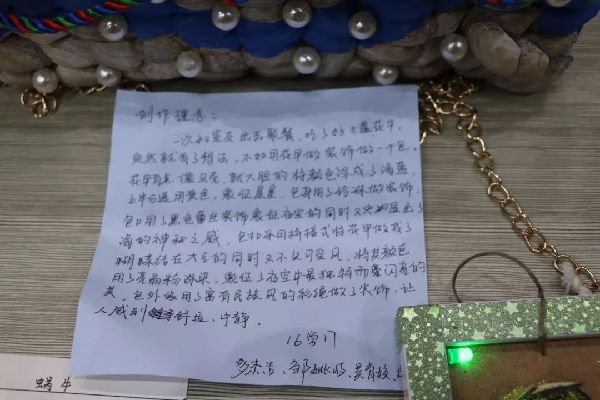 创作理念:
一次和室友出去聚餐、吃了好大一盘花甲,
突然就有了想法,不如用花甲做装饰做一个包。
花甲有点像贝壳,就大胆的将颜色涂成了海蓝,
上半部运用黄色,象征星星,包身用了珍珠做装饰,
包口用了黑色蕾丝装饰象征夜空的同时又突显出了
海的神秘之感,包扣采用将格式将花甲做成了
蝴蝶结在大全的同时又不失可爱风,将其颜色
用了亮晶粉涂染,象征了夜空中最独特而最闪耀的
美,包外缘用了富有民族风的彩绳做了装饰,让
人感到舒适、宁静。
16学门
多杰吉、
蜗牛